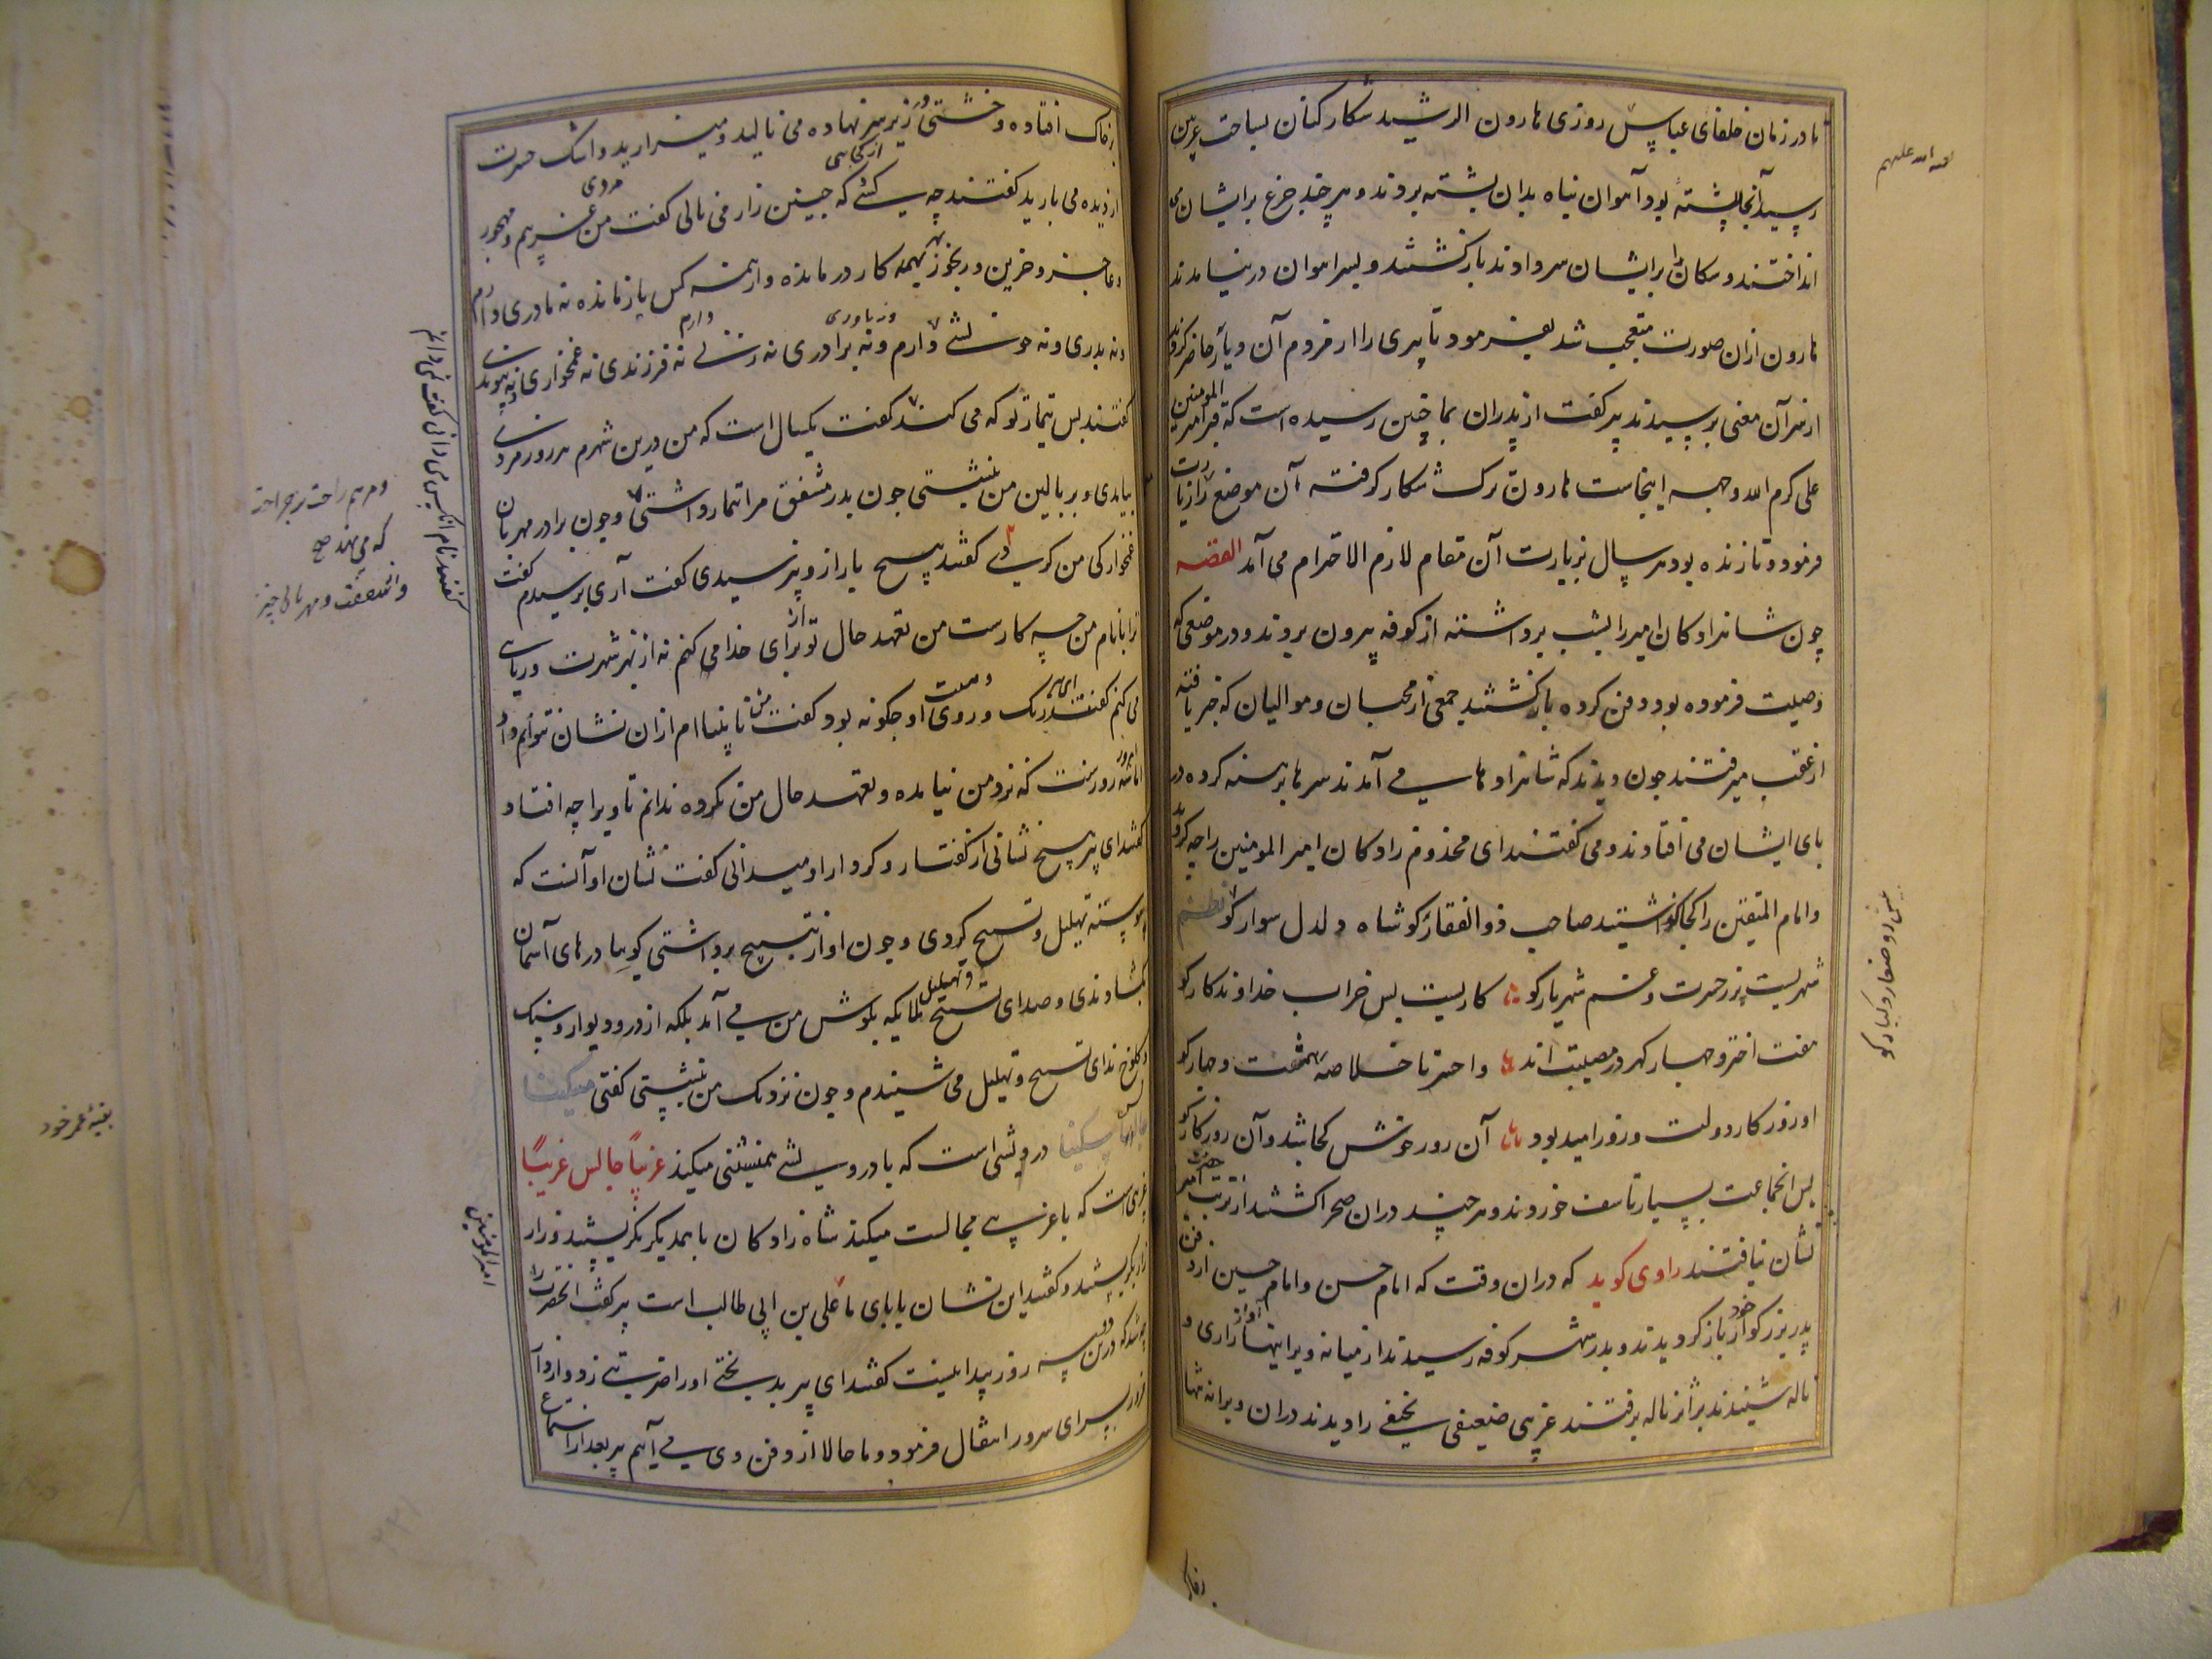 تا در زمان خلفای عباس روزی هارون الرشید شکار کنان بساحت غریین
رسید آنجا پشتهٔ بود آهوان پناه بدان پشته بردند و هر چند چرغ بر ایشان می
انداختند و سکان را بر ایشان سر دادند بازکشتند و بسر اهوان در نیامدند
هارون ازان صورت متعجب شد بفرمود تا پیری را از مردم آن دیار حاضر کردند
از سر آن معنی بپرسیدند پیر کفت از پدران بما چنین رسیده است که قبر امیر المومنین
علی کرم الله وجهه اینجاست هارون ترک شکار کرفته آن موضع را زیارت
فرمود و تا زنده بود هر سال بزیارت آن مقام لازم الاحترام می آمد القصه
چون شاهزادکان امیر را بشب برداشته از کوفه بیرون بردند و در موضعی که
وصیت فرموده بود دفن کرده بازکشتند جمعی از محبان و موالیان که خبر یافته
از عقب میرفتند چون دیدند که شاهزادها می آمدند سرها برهنه کرده در
پای ایشان می افتادند و می کفتند ای مخدوم زادکان امیر المومنین را چه کردید
و امام المتقین را کجا کذاشتید صاحب ذوالفقار کو شاه دلدل سوار کو نظم
شهریست پر ز حسرت و غم شهریار کو کاریست بس خراب خداوند کار کو
هفت اختر و چهار کهر در مصیبت اند وا حسرتا خلاصه هشت و چهار کو
او روز کار دولت و روز امید بود آن روز خوش کجا شد و آن روزکار کو
پس انجماعت بسیار تاسف خوردند و هر چند دران صحرا کشتند از تربت حضرت امیر
نشان نیافتند راوی کوید که دران وقت که امام حسن و امام حسین از دفن
پدر بزرکوار خود باز کردیدند و بدر شهر کوفه رسیدند از میانه ویرانها آواز زاری و
ناله شنیدند بر اثر ناله برفتند غریبی ضعیفی نحیفی را دیدند دران ویرانه تنها
لعنة الله علیهم
بر خاک افتاده و خشتی در زیر سر نهاده می نالید و میزارید و اشک حسرت
از دیده می بارید کفتند چه کسئی از کجایی که چنین زار می نالی کفت من مردی غریبم و مهجور
و عاجز و حزین و رنجور بهمه کار در مانده و از همه کس باز مانده نه مادری دارم
و نه پدری و نه خویشی دارم و نه یاوری و نه برادری نه زنی دارم نه فرزندی نه غمخواری نه پیوندی
کفتند پس تیمار تو که می کند کفت یکسال است که من درین شهرم هر روز مردی
بیامدی و بر بالین من بنشستی چون پدر مشفق مرا تیمار داشتی و چون برادر مهربان
غمخوارکی من کردی کفتند هیچ نام از و پرسیدی کفت آری پرسیدم کفت
ترا با نام من چه کارست من تعهد حال تو از برای خدا می کنم نه از بهر شهرت و ریا
می کنم کفتند ای پیر رنک و روی و هیئت او چکونه بود کفت من نا بینا ام ازان نشان نتوانم داد
اما امروز سه روزست که نزد من نیامده و تعهد حال من نکرده ندانم تا ویرا چه افتاد
کفتند ای پیر هیچ نشانی از کفتار و کردار او میدانی کفت نشان او آنست که
پیوسته تهلیل و تسبیح کردی و چون اواز تسبیح برداشتی کوییا درهای آسمان
بکشادندی و صدای تسبیح و تهلیل ملایکه بکوش من می آمد بلکه از در و دیوار و سنک
و کلوخ ندای تسبیح و تهلیل می شنیدم و چون نزدیک من بنشستی کفتی مسکینا
جالس مسکینا درویشی است که با درویشی همنشینی میکند غریباً جالس غریباً
غریبی است که با غریبی مجالست میکند شاه زادکان با یکدیکر نکریستند و زار
زار بکریستند و کفتند این نشان بابای ما علی بن ابی طالب است پیر کفت انحضرت را
چه شد که درین سه روز پیدا نیست کفتند ای پیر بدبختی او را ضربتی زد و از دار
غرور بسرای سرور انتقال فرمود و ما حالا از دفن وی می آییم پیر بعد از استماع
کفتند نام انکس می دانی کفت نمی دانم
و مرهم راحت بر جراحت
که می نهد صح
و شفقت و مهربانی
امیرالمومنین
بقیهٔ عمر خود
بر خاک